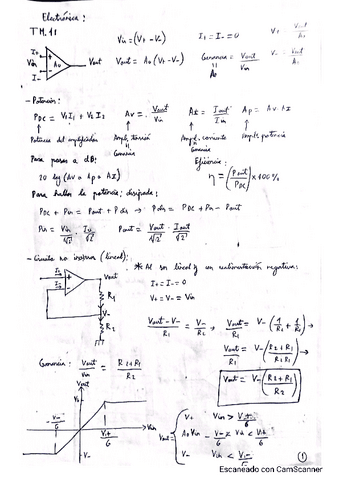 Electrónica:
TM.11
I+
Vin
I-
Ao
Vout
Vin = (V+ - V-)
I+ = I- = 0
Vout = Ao (V+ - V-)
Ganancia = Vout / Vin
Ao
- Potencia:
PDC = V1 I1 + V2 I2
Av = Vout / Vin
AI = Iout / Iin
Ap = Av · AI
Potencia del amplificador
Ampl. tensión
Ganancia
Ampl. corriente
Ganancia
Ampl. potencia
Para pasar a dB:
20 log (Av o Ap o AI)
Eficiencia:
η = (Pout / PDC) x 100%
Para hallar la potencia disipada:
PDC + Pin = Pout + Pdis → Pdis = PDC + Pin - Pout
Pin = Vin/√2 · Iin/√2
Pout = Vout/√2 · Iout/√2
- Circuito no inversor (lineal):
* Al ser lineal y un realimentación negativa:
I+ = I- = 0
V+ = V- = Vin
Vout
R1
V-
R2
(Vout - V-) / R1 = V- / R2
Vout / R1 = V- (1/R2 + 1/R1) →
Vout / R1 = V- ((R2 + R1) / (R2 R1)) →
Vout = V- ((R2 + R1) / R2)
Ganancia: Vout / Vin = (R2 + R1) / R2
Vout
V+
V- / G
V+ / G
V-
Vout =
V+ Vin > V+ / G
V- Vin < V- / G
1
Escaneado con CamScanner